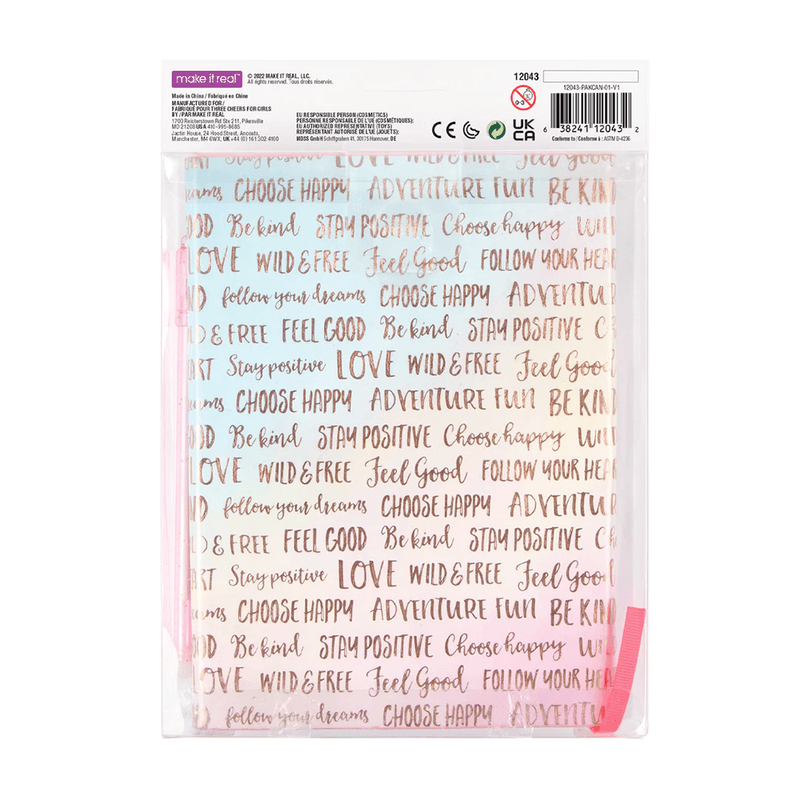 make it real™
© 2022 MAKE IT REAL, LLC.
All rights reserved. Tous droits réservés.
Made in China / Fabriqué en Chine
MANUFACTURED FOR /
FABRIQUÉ POUR THREE CHEERS FOR GIRLS
BY / PAR MAKE IT REAL
1700 Reisterstown Rd Ste 211, Pikesville
MD 21208 USA 410-995-8685
Jactin House, 24 Hood Street, Ancoats,
Manchester, M4 6WX, UK +44 (0) 161 302 4100
EU RESPONSIBLE PERSON (COSMETICS)
PERSONNE RESPONSABLE DE L'UE (COSMÉTIQUES):
EU AUTHORIZED REPRESENTATIVE (TOYS)
REPRÉSENTANT AUTORISÉ DE L'UE (JOUETS):
MDSS GmbH Schiffgraben 41, 30175 Hannover, DE
CE
0-3
UK
CA
12043
12043-PAKCAN-01-V1
6 38241 12043 2
Conforms to / Conforme à : ASTM D-4236
ART Stay positive LOVE WILD & FREE Feel Good
dreams CHOOSE HAPPY ADVENTURE FUN BE KIND
OOD Be kind STAY POSITIVE Choose happy WIL
LOVE WILD & FREE Feel Good FOLLOW YOUR HEAR
ND follow your dreams CHOOSE HAPPY ADVENTU
D & FREE FEEL GOOD Be kind STAY POSITIVE C
ART Stay positive LOVE WILD & FREE Feel Good
eams CHOOSE HAPPY ADVENTURE FUN BE KIN
OOD Be kind STAY POSITIVE Choose happy WIL
LOVE WILD & FREE Feel Good FOLLOW YOUR HEAR
ND follow your dreams CHOOSE HAPPY ADVENTU
D & FREE FEEL GOOD Be kind STAY POSITIVE C
ART Stay positive LOVE WILD & FREE Feel Good
ams CHOOSE HAPPY ADVENTURE FUN BE KIN
OOD Be kind STAY POSITIVE Choose happy WI
LOVE WILD & FREE Feel Good FOLLOW YOUR HEAR
D follow your dreams CHOOSE HAPPY ADVENTU